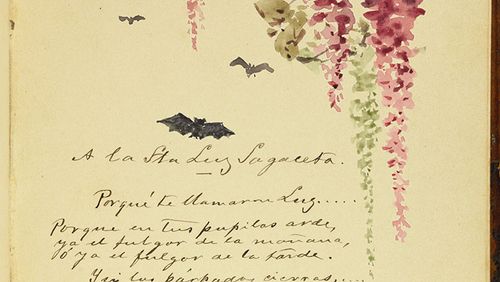 A la Sta Luz Sagaceta.
Porqué te llamaron Luz.....
Porque en tus pupilas arde,
ya el fulgor de la mañana,
ó ya el fulgor de la tarde.
Y si los párpados cierras.....